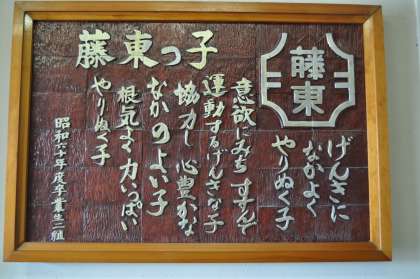 藤東っ子
藤東
げんきに
なかよく
やりぬく子
意欲にみち すすんで
運動するげんきな子
協力し 心豊かな
なかのよい子
根気よく力いっぱい
やりぬく子
昭和六十年度卒業生二組